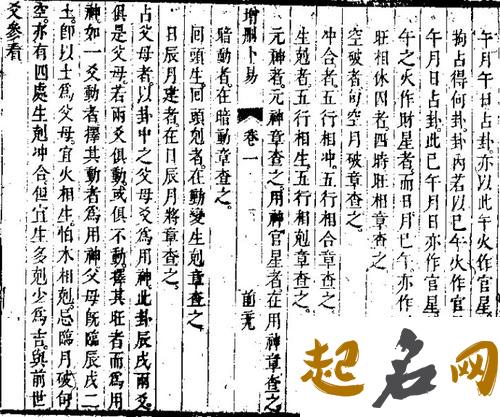 午月日占卦。亦以此午火作官星。
拘占得何卦。卦內若以巳午火作官
午月日占卦。此巳午月日亦作官星。
午之火作財星者。而日月巳午亦作
旺相休囚者。四時旺相章查之。
空破者。旬空月破章查之。
冲合者。五行相冲。五行相合章查之。
生剋者。五行相生。五行相剋章查之。
元神者。元神章查之。用神官星者。在用神章查之。
增刪卜易 卷一 前
暗動者。在暗動章查之。
回頭生。回頭剋者。在動變生剋章查之。
日辰月建者。在日辰月將章查之。
占父母者。以卦中之父母爻爲用神。此卦辰戌兩爻
俱是父母。若兩爻俱動。或俱不動。擇其旺者而爲用
神。如一爻動者。擇其動者爲用神。父母既臨辰戌二
土。卽以土爲父母。宜火相生。怕木相剋。忌臨月破旬
空。亦有四處生剋冲合。但宜生多剋少爲吉。與前世
爻參看
起名网